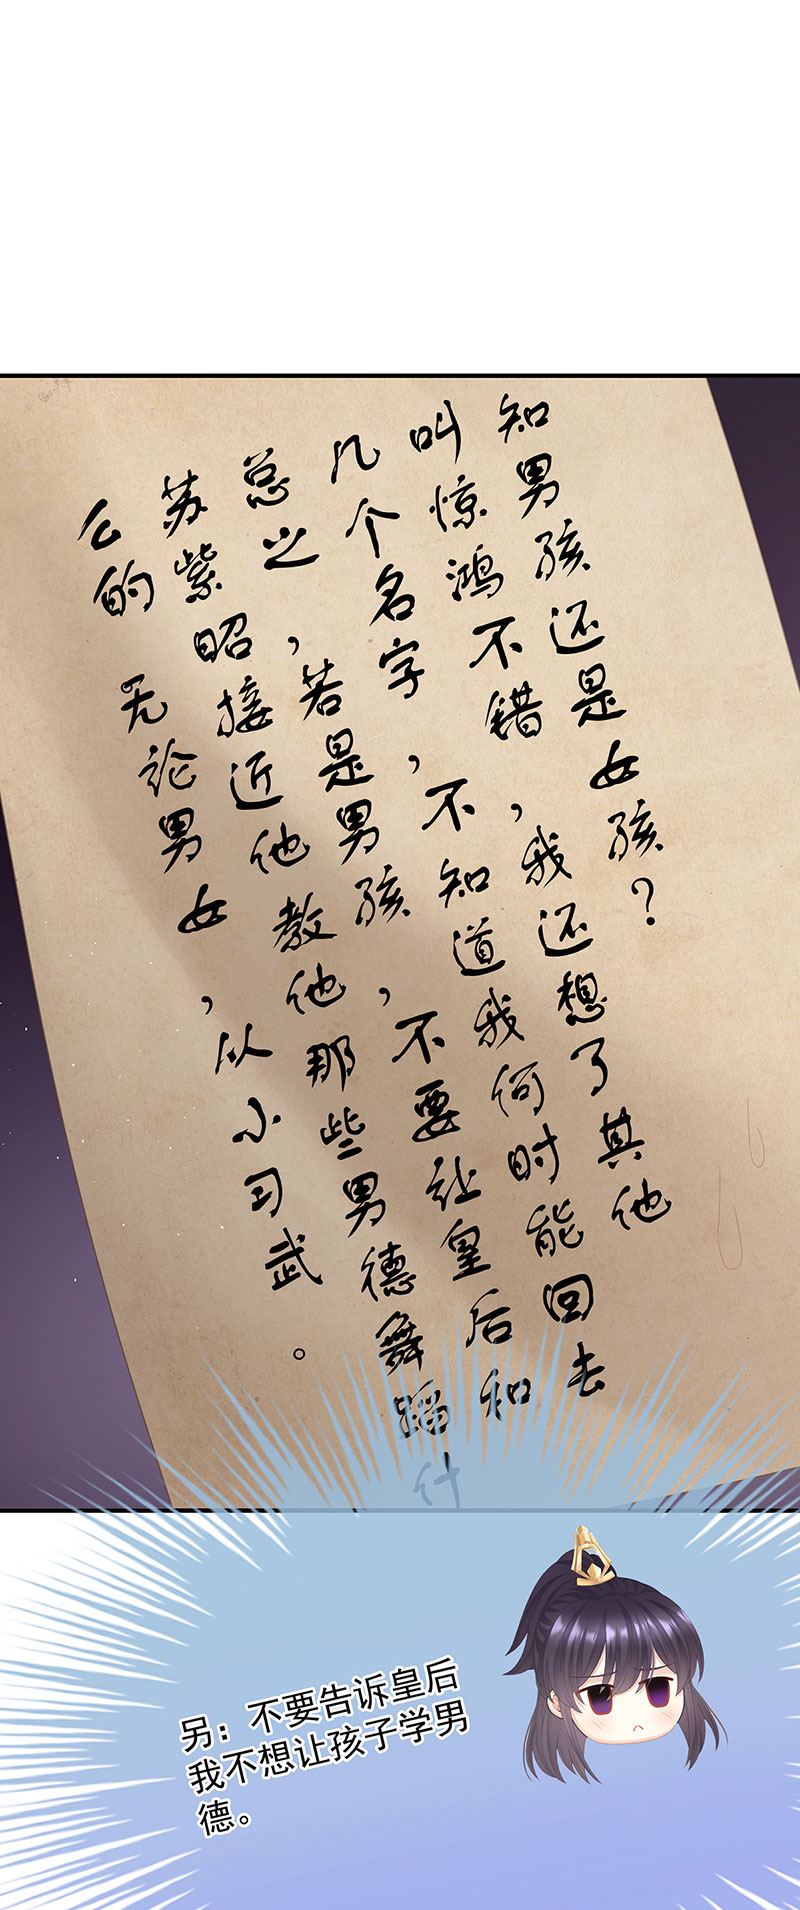 知男孩还是女孩？
叫惊鸿不错，我还想了其他
几个名字，不知道我何时能回去
总之，若是男孩，不要让皇后和
苏紫昭接近他教他那些男德舞蹈什
么的
无论男女，从小习武。
另：不要告诉皇后
我不想让孩子学男
德。